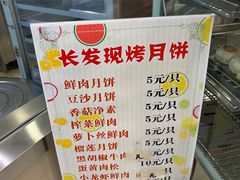 长发现烤月饼
鲜肉月饼 5元/只
豆沙月饼 5元/只
香菇净素 5元/只
榨菜鲜肉 5元/只
萝卜丝鲜肉 5元/只
榴莲月饼
黑胡椒牛肉 10元/只
蛋黄肉松
小龙虾鲜肉